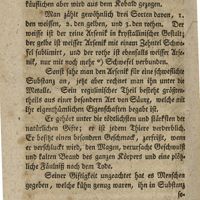 käuflichen aber wird aus dem Kobald gezogen.
Man zählt gewöhnlich drei Sorten davon, 1.
den weissen, 2. den gelben, und 3. den rothen. Der
weisse ist der reine Arsenik in krystallinischer Gestalt;
der gelbe ist weisser Arsenik mit einem Zehntel Schwe-
fel sublimirt, und der rothe ist ebenfalls weisser Arse-
nik, nur mit noch mehr *) Schwefel verbunden.
Sonst sahe man den Arsenik für eine schweflichte
Substanz an, jetzt aber rechnet man ihn unter die
Metalle. Sein regulinischer Theil besteht größten-
theils aus einer besondern Art von Säure, welche mit
ihr eigenthümlichen Eigenschaften begabt ist.
Er gehört unter die tödtlichsten und stärksten der
natürlichen Gifte; er ist jedem Thiere verderblich.
Er besitzt einen besondern Geschmack, zerfrißt, wenn
er verschluckt wird, den Magen, verursacht Geschwulst
und kalten Brand des ganzen Körpers und eine plötz-
liche Fäulniß nach dem Tode.
Seiner Giftigkeit ungeachtet hat es Menschen
gegeben, welche kühn genug waren, ihn in Substanz